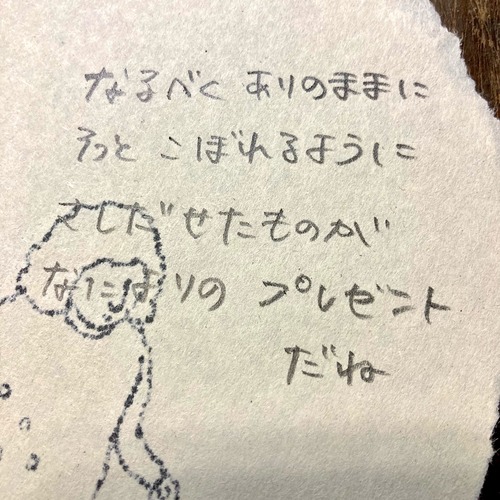 なるべく ありのままに
そっと こぼれるように
さしだせたものが
なによりの プレゼント
だね